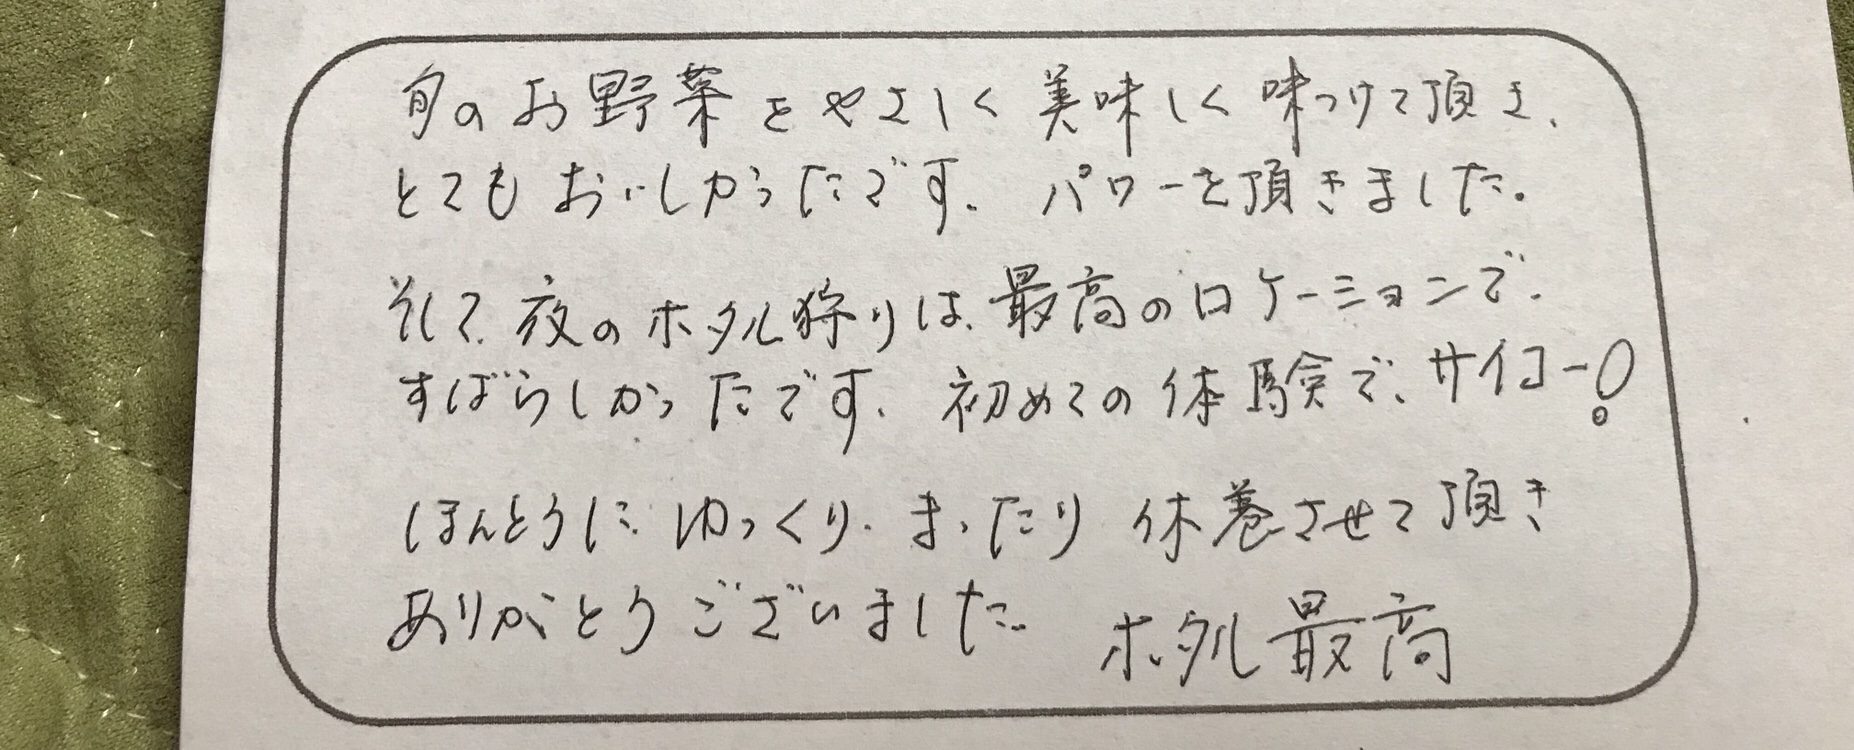 旬のお野菜をやさしく美味しく味つけて頂き、
とてもおいしかったです。パワーを頂きました。
そして、夜のホタル狩りは、最高のロケーションで、
すばらしかったです。初めての体験で、サイコー!
ほんとうに、ゆっくり、まったり休養させて頂き
ありがとうございました。ホタル最高